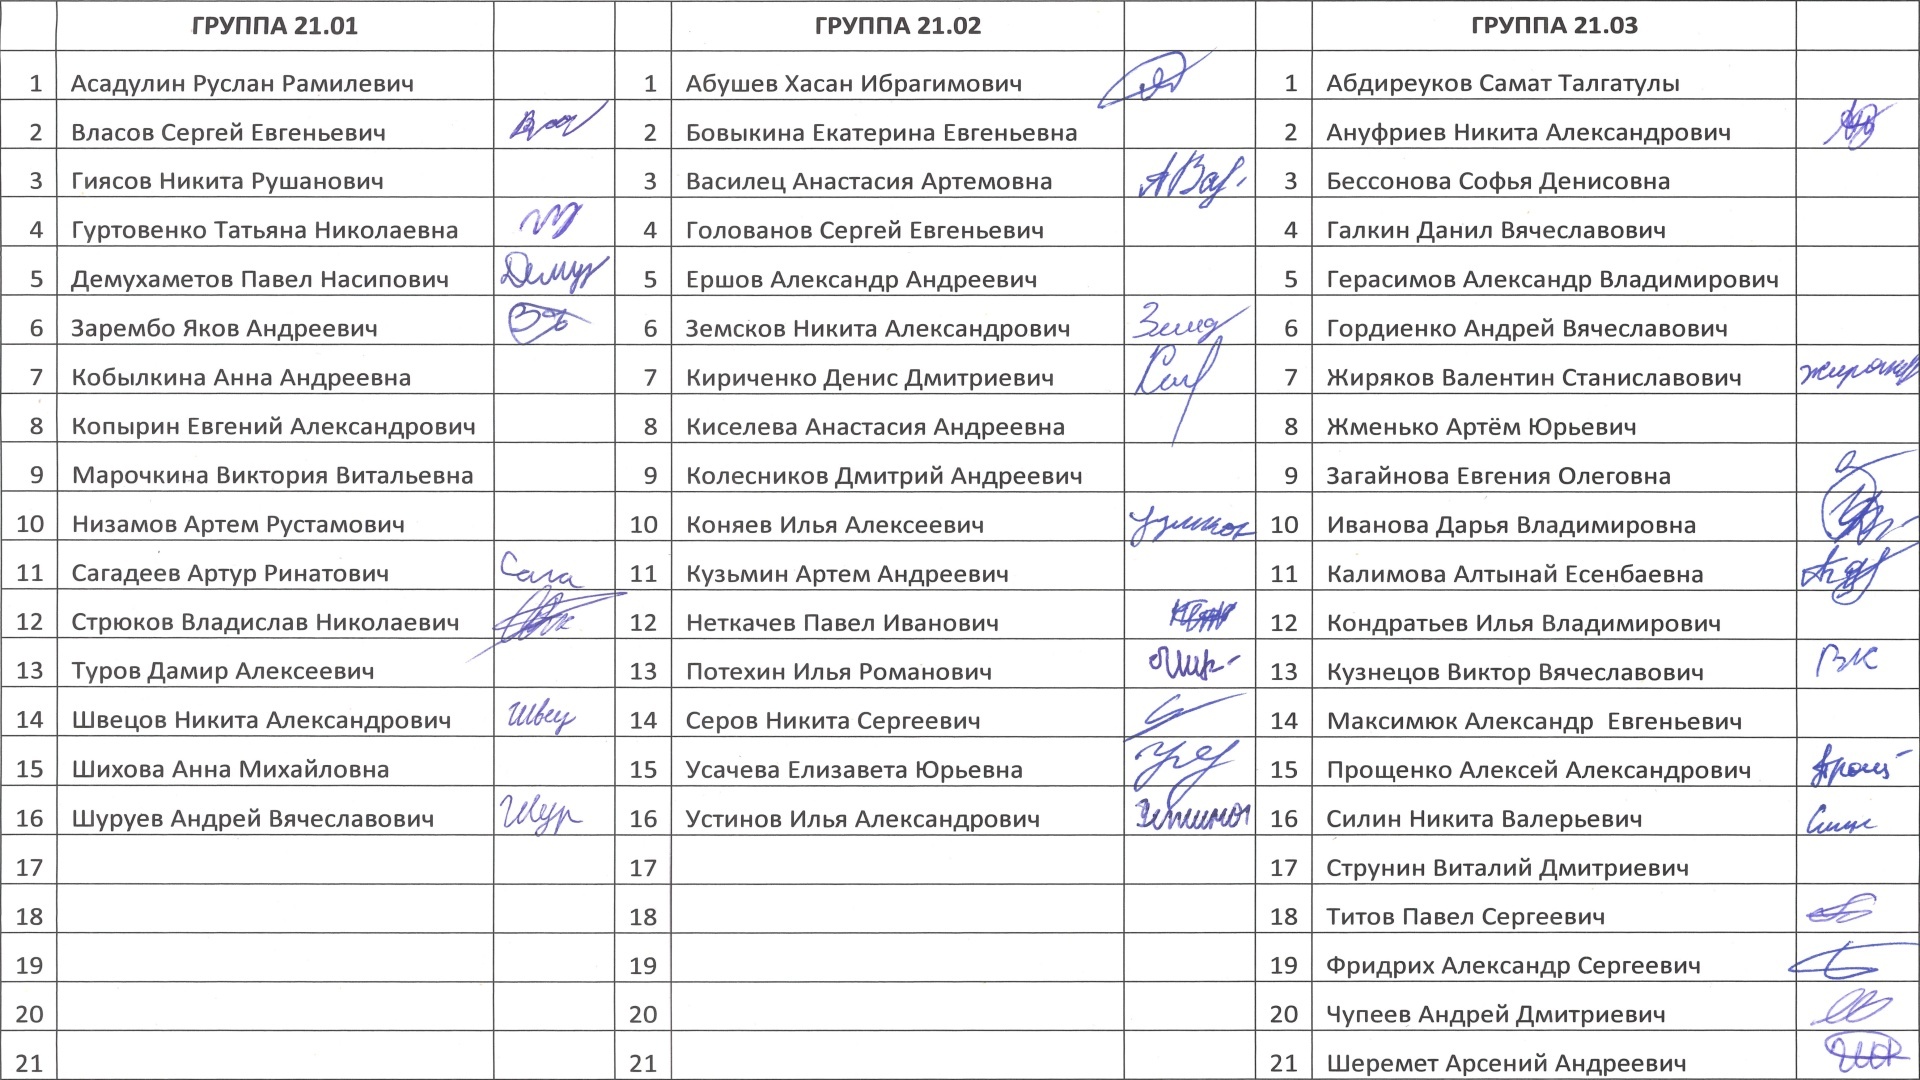 ГРУППА 21.01 ГРУППА 21.02 ГРУППА 21.03
1 Асадулин Руслан Рамилевич 1 Абушев Хасан Ибрагимович 1 Абдиреуков Самат Талгатулы
2 Власов Сергей Евгеньевич 2 Бовыкина Екатерина Евгеньевна 2 Ануфриев Никита Александрович
3 Гиясов Никита Рушанович 3 Василец Анастасия Артемовна 3 Бессонова Софья Денисовна
4 Гуртовенко Татьяна Николаевна 4 Голованов Сергей Евгеньевич 4 Галкин Данил Вячеславович
5 Демухаметов Павел Насипович Демур 5 Ершов Александр Андреевич 5 Герасимов Александр Владимирович
6 Зарембо Яков Андреевич 6 Земсков Никита Александрович 6 Гордиенко Андрей Вячеславович
7 Кобылкина Анна Андреевна 7 Кириченко Денис Дмитриевич 7 Жиряков Валентин Станиславович
8 Копырин Евгений Александрович 8 Киселева Анастасия Андреевна 8 Жменько Артём Юрьевич
9 Марочкина Виктория Витальевна 9 Колесников Дмитрий Андреевич 9 Загайнова Евгения Олеговна
10 Низамов Артем Рустамович 10 Коняев Илья Алексеевич 10 Иванова Дарья Владимировна
11 Сагадеев Артур Ринатович Сага 11 Кузьмин Артем Андреевич 11 Калимова Алтынай Есенбаевна
12 Стрюков Владислав Николаевич 12 Неткачев Павел Иванович 12 Кондратьев Илья Владимирович
13 Туров Дамир Алексеевич 13 Потехин Илья Романович 13 Кузнецов Виктор Вячеславович ВК
14 Швецов Никита Александрович Швец 14 Серов Никита Сергеевич 14 Максимюк Александр Евгеньевич
15 Шихова Анна Михайловна 15 Усачева Елизавета Юрьевна 15 Прощенко Алексей Александрович Прощ
16 Шуруев Андрей Вячеславович Шур 16 Устинов Илья Александрович 16 Силин Никита Валерьевич
17 17 17 Струнин Виталий Дмитриевич
18 18 18 Титов Павел Сергеевич
19 19 19 Фридрих Александр Сергеевич
20 20 20 Чупеев Андрей Дмитриевич
21 21 21 Шеремет Арсений Андреевич